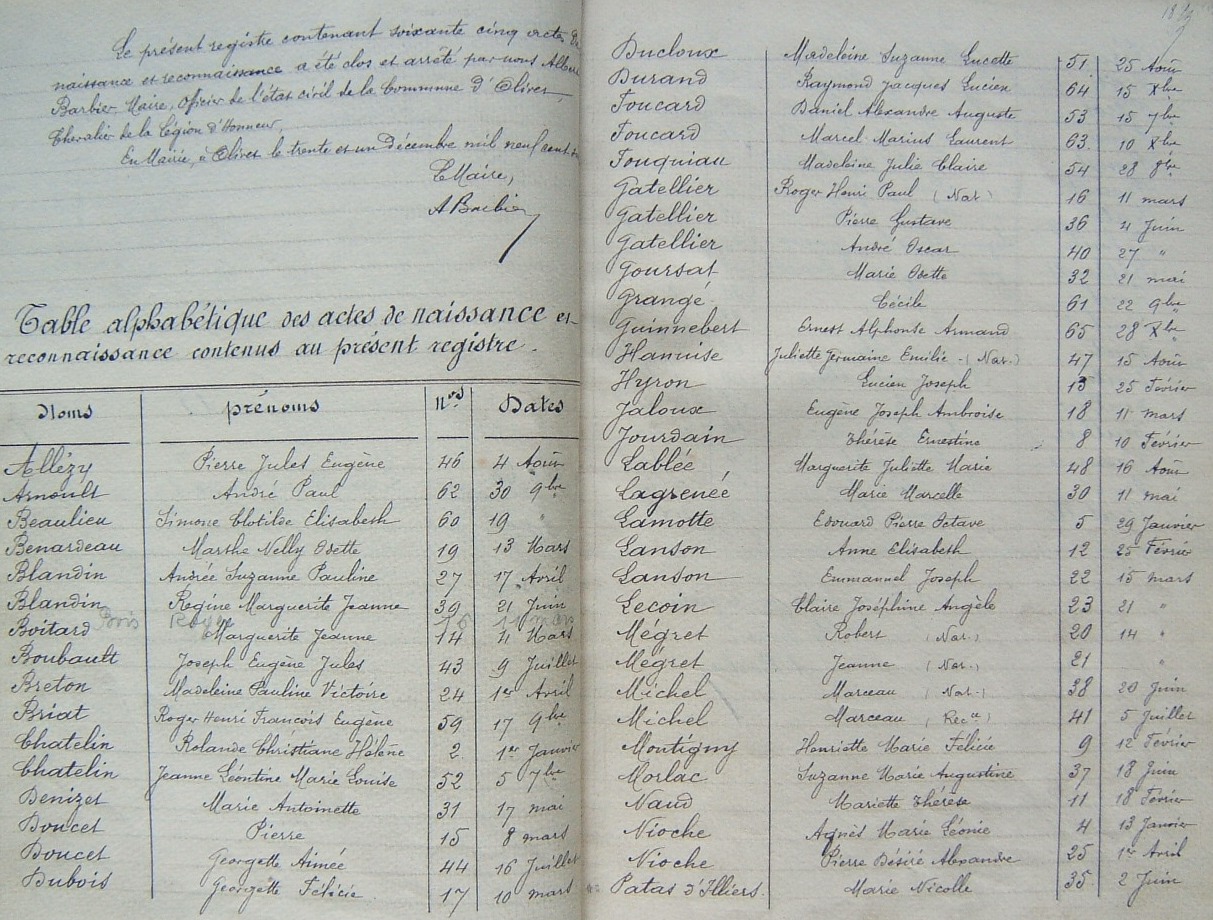 Le présent registre contenant soixante cinq actes de
naissance et reconnaissance a été clos et arrêté par nous Albert
Barbier Maire, officier de l'état civil de la Commune d'Olivet,
Chevalier de la Légion d'Honneur,
En Mairie, à Olivet le trente et un Décembre mil neuf cent
Le Maire,
A Barbier
Table alphabétique des actes de naissance et
reconnaissance contenus au présent registre.
Noms prénoms Nos Dates
Allézy Pierre Jules Eugène 46 4 Août
Arnoult André Paul 62 30 9bre
Beaulieu Simone Clotilde Elisabeth 60 19 "
Benardeau Marthe Nelly Odette 19 13 Mars
Blandin Andrée Suzanne Pauline 27 17 Avril
Blandin Régine Marguerite Jeanne 39 21 Juin
Bois 16 11 mars
Boitard Marguerite Jeanne 14 4 Mars
Boubault Joseph Eugène Jules 43 9 Juillet
Breton Madeleine Pauline Victoire 24 1er Avril
Briat Roger Henri François Eugène 59 17 9bre
Chatelin Rolande Christiane Hélène 2 1er Janvier
Chatelin Jeanne Léontine Marie Louise 52 5 7bre
Denizet Marie Antoinette 31 17 mai
Doucet Pierre 15 8 mars
Doucet Georgette Aimée 44 16 Juillet
Dubois Georgette Félicie 17 10 mars
Ducloux Madeleine Suzanne Lucette 51 25 Août
Durand Raymond Jacques Lucien 64 15 Xbre
Foucard Daniel Alexandre Auguste 53 15 7bre
Foucard Marcel Marius Laurent 63 10 Xbre
Fouquiau Madeleine Julie Claire 54 28 8bre
Gatellier Roger Henri Paul (Nat.) 16 11 mars
Gatellier Pierre Gustave 36 4 Juin
Gatellier André Oscar 40 27 "
Goursat Marie Odette 32 21 mai
Grangé Cécile 61 22 9bre
Guinnebert Ernest Alphonse Armand 65 28 Xbre
Hanuise Juliette Germaine Emilie (Nat.) 47 15 Août
Hyron Lucien Joseph 13 25 Février
Jaloux Eugène Joseph Ambroise 18 11 mars
Jourdain Thérèse Ernestine 8 10 Février
Lablée Marguerite Juliette Marie 48 16 Août
Lagrenée Marie Marcelle 30 11 mai
Lamotte Edouard Pierre Octave 5 29 Janvier
Lanson Anne Elisabeth 12 25 Février
Lanson Emmanuel Joseph 22 15 mars
Lecoin Claire Joséphine Angèle 23 21 "
Mégret Robert (Nat.) 20 14 "
Mégret Jeanne (Nat.) 21 "
Michel Marceau (Nat.) 38 20 Juin
Michel Marceau (Recce) 41 5 Juillet
Montigny Henriette Marie Félicie 9 12 Février
Morlac Suzanne Marie Augustine 37 18 Juin
Naud Mariette Thérèse 11 18 Février
Nioche Agnès Marie Léonie 4 13 Janvier
Nioche Pierre Désiré Alexandre 25 1er Avril
Patas d'Illiers. Marie Nicolle 35 2 Juin